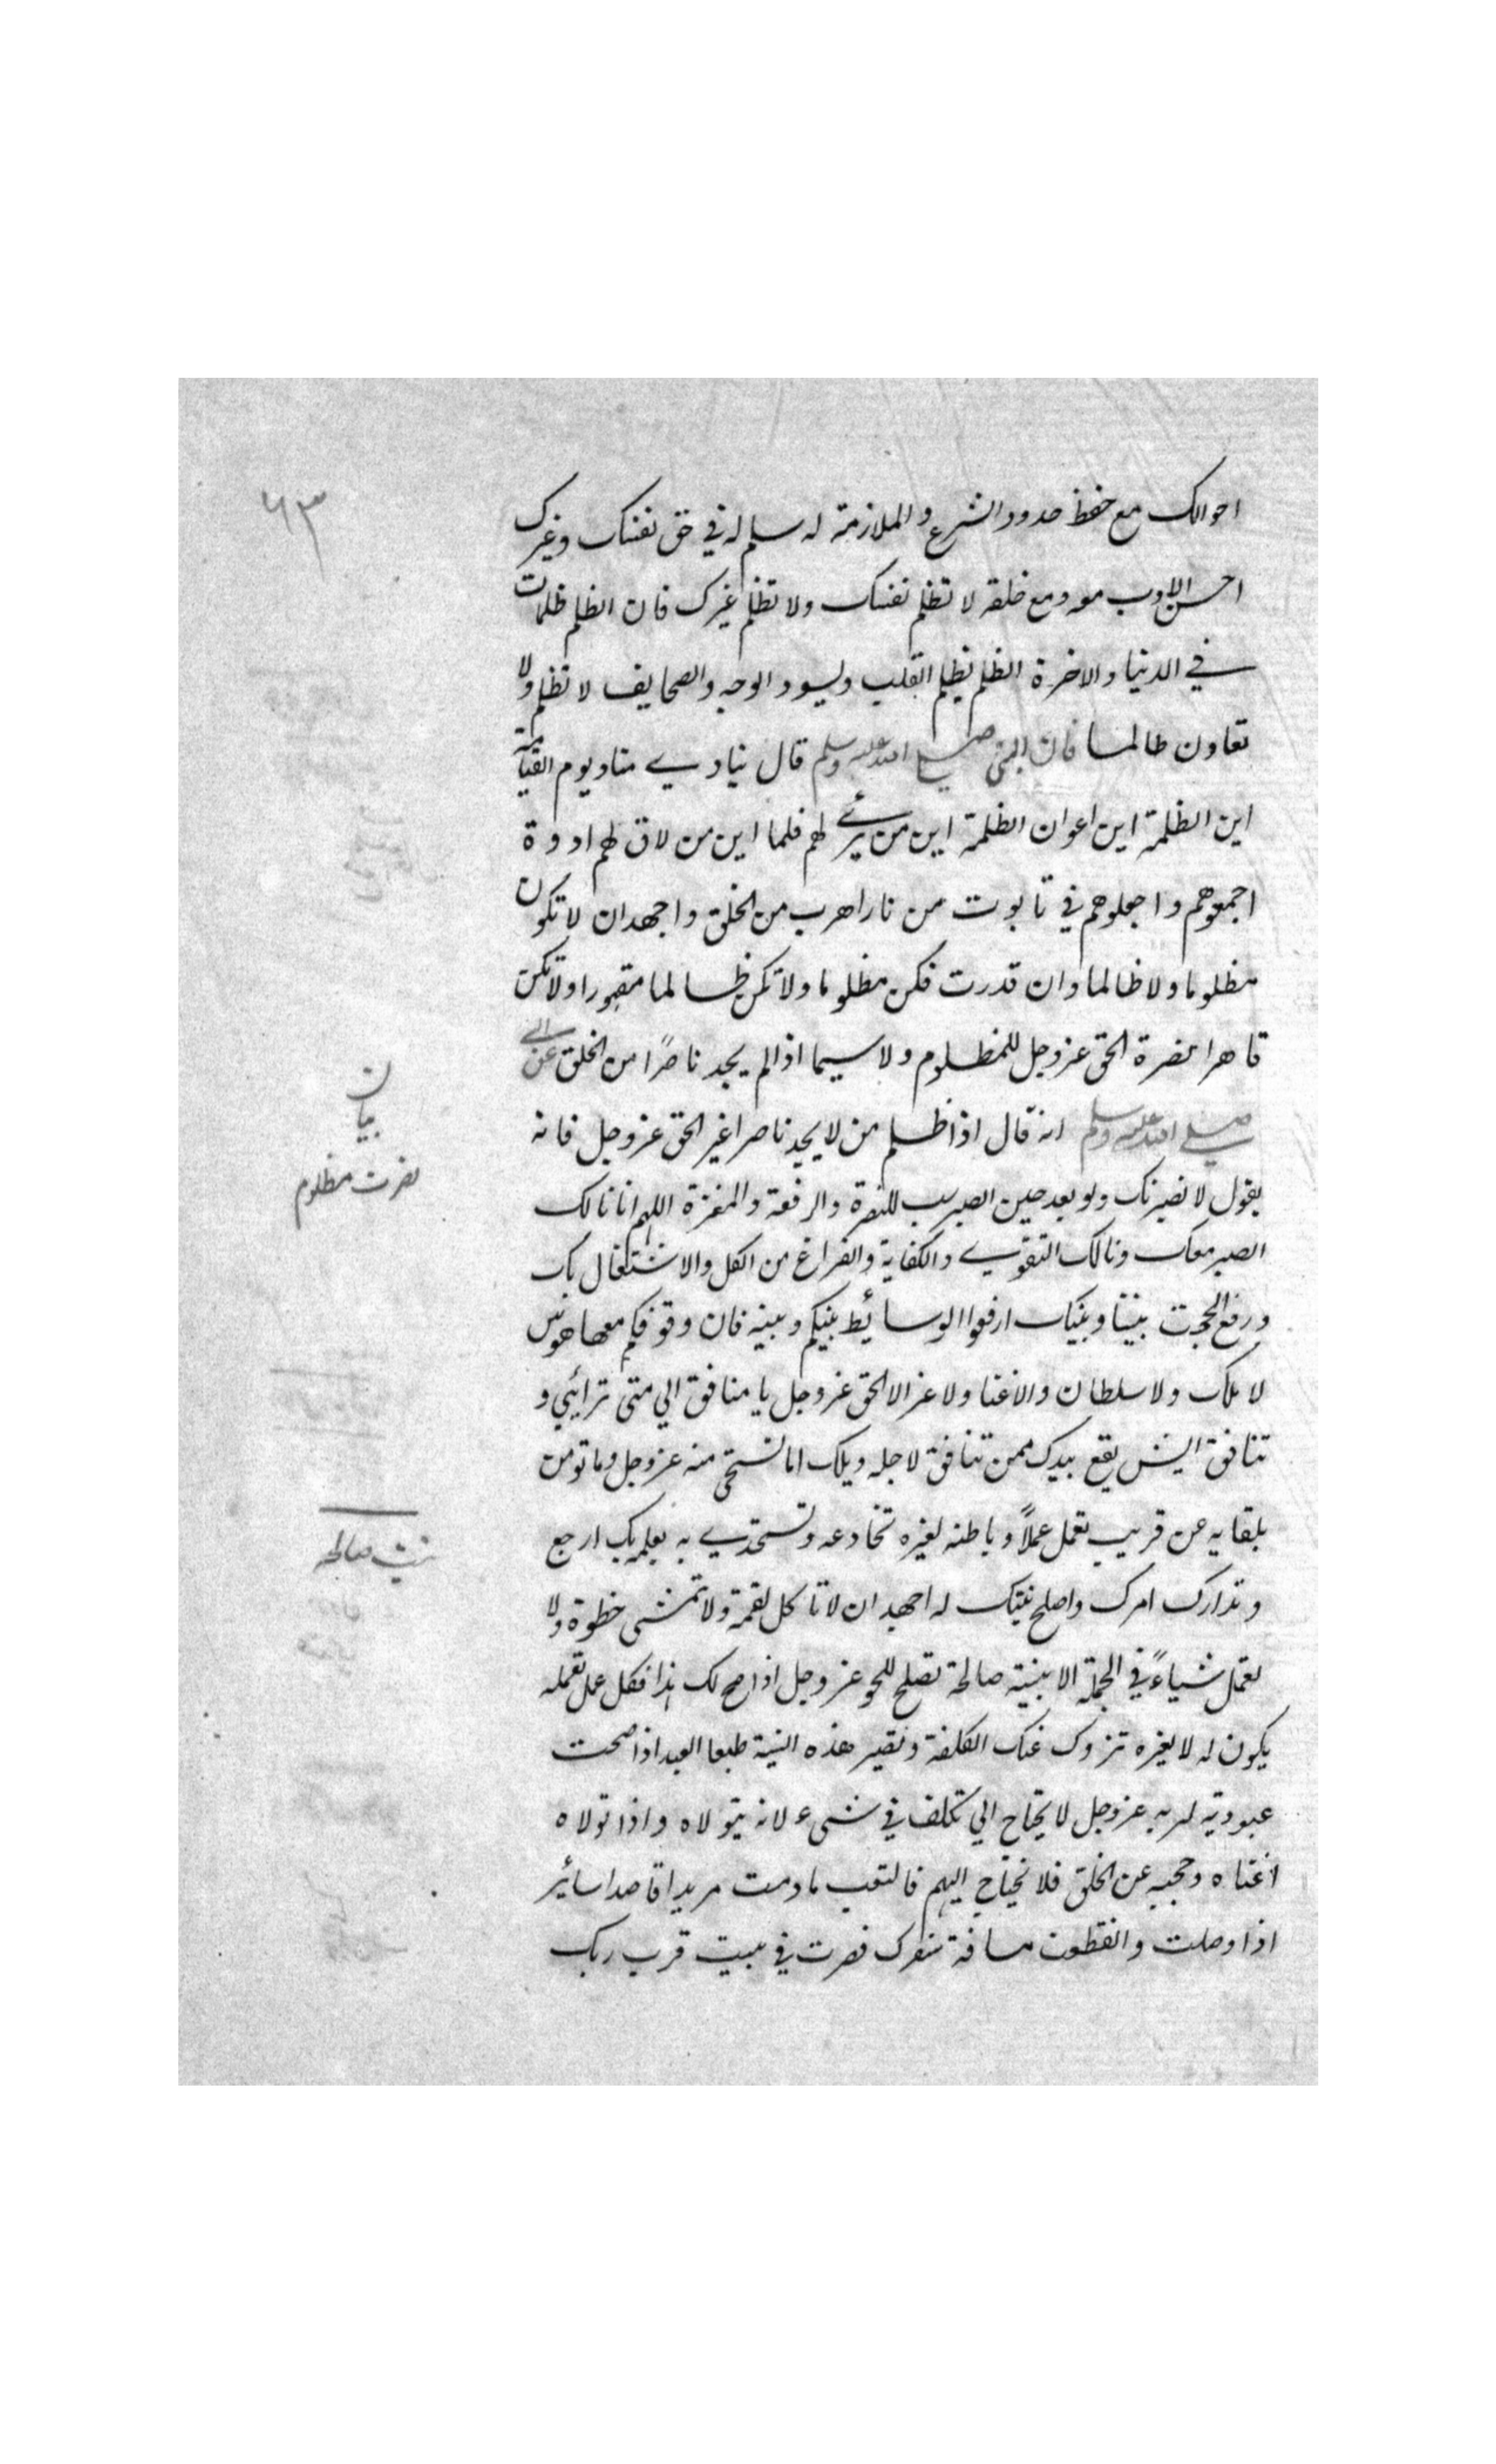 ٦٣
احوالك مع حفظ حدود الشرع والملازمة له سلم له في حق نفسك وغيرك
احسن الادب معه ومع خلقه لا تظلم نفسك ولا تظلم غيرك فان الظلم ظلمات
في الدنيا والاخرة الظلم يظلم القلب ويسود الوجه والصحايف لا تظلم ولا
تعاون ظالما فان النبي صلي الله عليه وسلم قال ينادي مناد يوم القيامة
اين الظلمة اين اعوان الظلمة اين من برئ لهم قلما اين من لاق لهم دوة
اجمعوهم واجعلوهم في تابوت من نار اهرب من الخلق واجهد ان لا تكون
مظلوما ولا ظالما وان قدرت فكن مظلوما ولا تكن ظالما مقهورا ولا تكن
قاهرا نصرة الحق عزوجل للمظلوم ولا سيما اذا لم يجد ناصرًا من الخلق عن النبي
صلي الله عليه وسلم انه قال اذا ظلم من لا يجد ناصرا غير الحق عزوجل فانه
يقول لانصرنك ولو بعد حين الصبر سبب للنصرة والرفعة والمغزة اللهم انا نسالك
الصبر معك ونسالك التقوي والكفاية والفراغ من الكل والاشتغال بك
ورفع الحجب بيننا وبينك ارفعوا الوسائط بينكم وبينه فان وقوفكم معها هوس
لا ملك ولا سلطان ولا غنا ولا عز الا للحق عزوجل يا منافق الي متى ترائي و
تنافق ايش يقع بيدك ممن تنافق لاجله ويلك اما تستحي منه عزوجل وما تومن
بلقايه عن قريب تعمل عملاً وباطنه لغيره تخادعه وتستجدي به بعلمه بك ارجع
وتدارك امرك واصلح نيتك له اجهد ان لا تاكل لقمة ولا تمشي خطوة ولا
تعمل شياءً في الجملة الا بنية صالحة تصلح للحق عزوجل اذا صح لك هذا فكل عمل تعمله
يكون له لا لغيره تزول عنك الكلفة وتصير هذه النية طبعا العبد اذا صحت
عبوديته لربه عزوجل لا يحتاج الي تكلف في شيء لانه يتولاه واذا تولاه
اغناه وحجبه عن الخلق فلا يحتاج اليهم فالتعب ما دمت مريدا قاصدا سائر
اذا وصلت وانقطعت مسافة سفرك فصرت في بيت قرب ربك
بيان
نصرت مظلوم
نيت صالحه